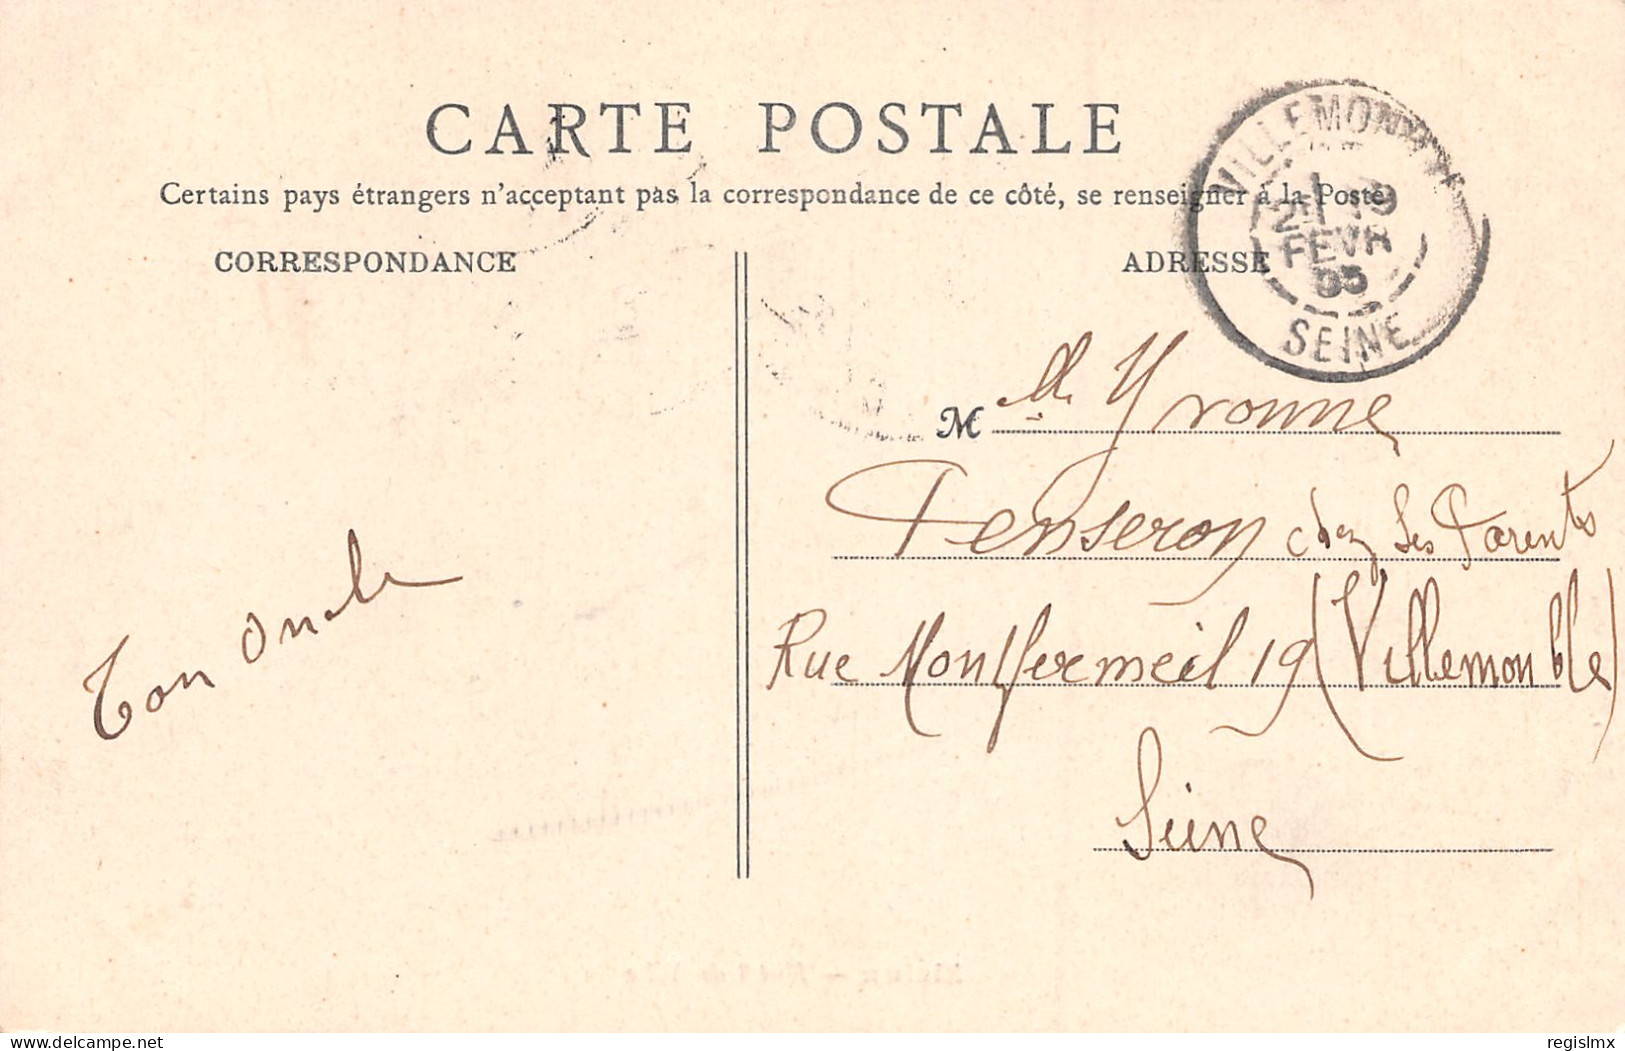 CARTE POSTALE
Certains pays étrangers n'acceptant pas la correspondance de ce côté, se renseigner à la Poste
CORRESPONDANCE
ADRESSE
VILLEMOMBLE
19
FEVR
05
SEINE
M lle Yvonne
Penseron chez Ses Parents
Rue Montfermeil 19 (Villemonble)
Seine
Ton Oncle
delcampe.net
regislmx